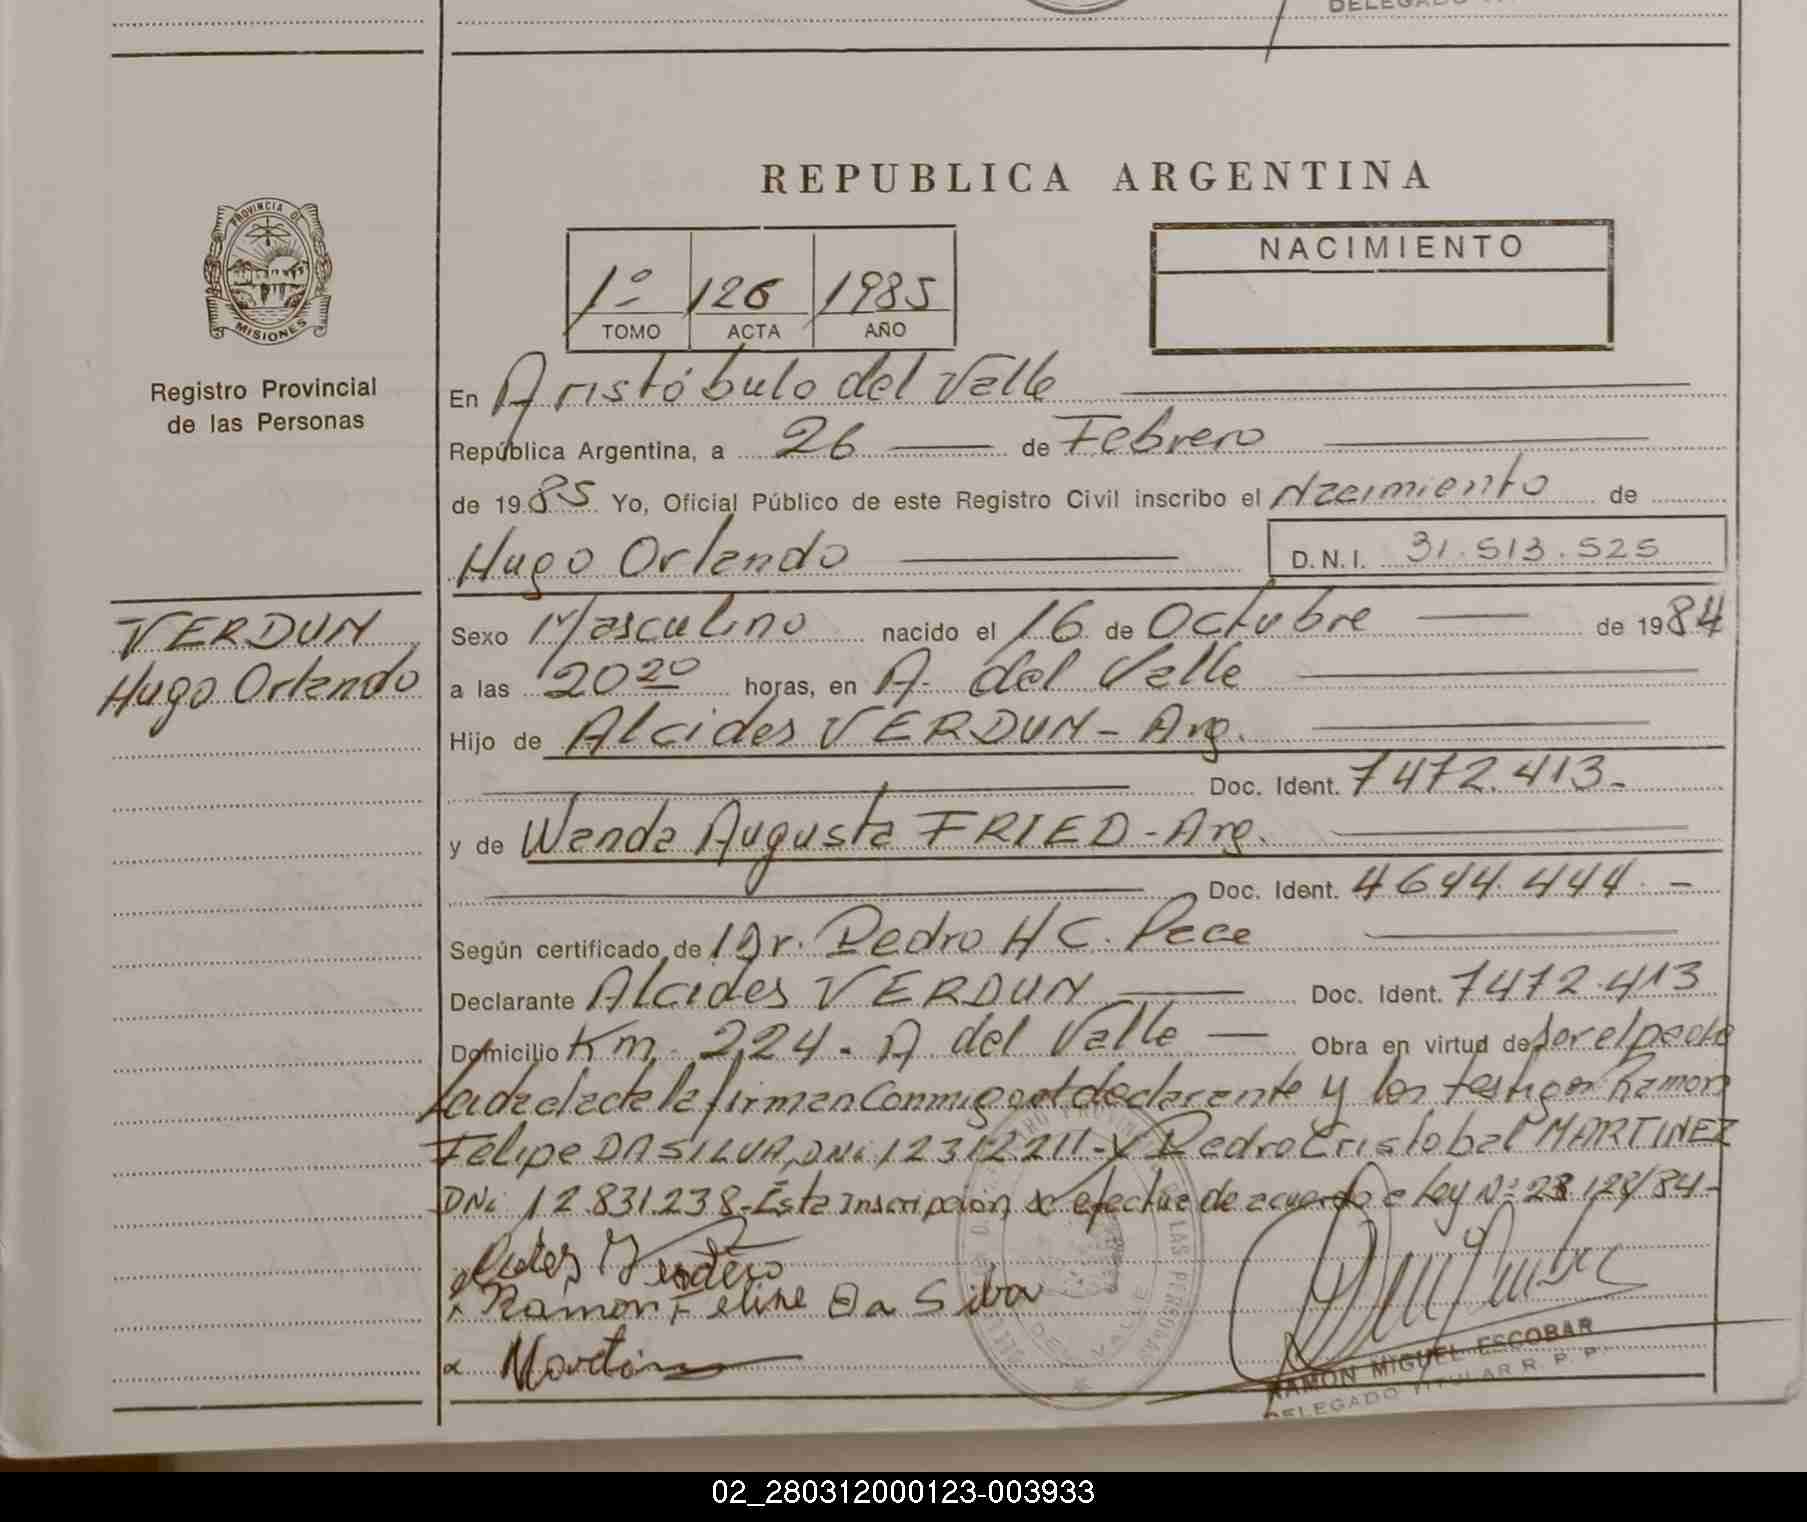 REPUBLICA ARGENTINA
PROVINCIA DE
MISIONES
Registro Provincial
de las Personas
1º 126 1985
TOMO ACTA AÑO
NACIMIENTO
En Aristóbulo del Valle
República Argentina, a 26 de Febrero
de 1985 Yo, Oficial Público de este Registro Civil inscribo el Nacimiento de
Hugo Orlando D.N.I. 31.513.525
VERDUN
Hugo Orlando
Sexo Masculino nacido el 16 de Octubre de 1984
a las 20 20 horas, en A. del Valle
Hijo de Alcides VERDUN - Arg.
Doc. Ident. 7472.413-
y de Wanda Augusta FRIED - Arg.
Doc. Ident. 4644.444.-
Según certificado de Dr. Pedro H C. Pece
Declarante Alcides VERDUN Doc. Ident. 7472.413
Domicilio Km. 224. A. del Valle Obra en virtud de ser el padre
Leida el acta la firman Conmigo el declarante y los testigos: Ramon
Felipe DA SILVA, DNi 12312211-Y Pedro Cristobal MARTINEZ
DNi 12.831.238-Esta inscripcion se efectua de acuerdo a ley Nº 23 128/84-
Ramon Feline Da Silva
RAMON MIGUEL ESCOBAR
DELEGADO TITULAR R. P. P.
02_280312000123-003933